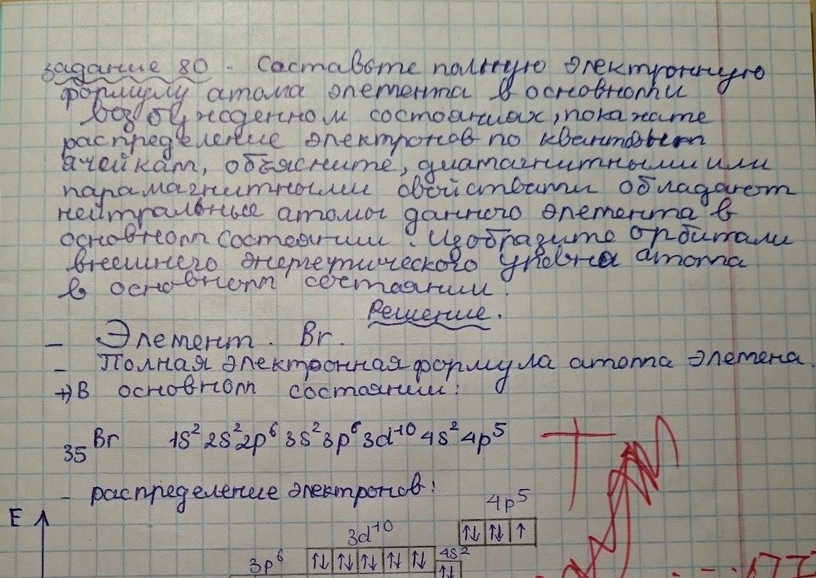 задание 80. Составьте полную электронную
формулу атома элемента в основном и
возбужденном состояниях, покажите
распределение электронов по квантовым
ячейкам, объясните, диамагнитными или
парамагнитными свойствами обладают
нейтральные атомы данного элемента в
основном состоянии. Изобразите орбитали
внешнего энергетического уровня атома
в основном состоянии.
Решение.
- Элемент. Br.
- Полная электронная формула атома элемена.
+) В основном состоянии:
35 Br 1s² 2s² 2p⁶ 3s² 3p⁶ 3d¹⁰ 4s² 4p⁵
- распределение электронов:
E
4p⁵
↑↓ ↑↓ ↑
3d¹⁰
↑↓ ↑↓ ↑↓ ↑↓ ↑↓
4s²
↑↓
3p⁶